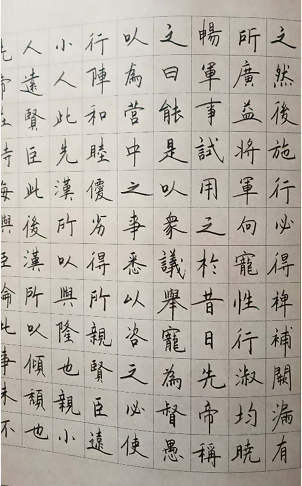 之然後施行必得裨補闕漏有
所廣益將軍向寵性行淑均曉
暢軍事試用之於昔日先帝稱
之曰能是以衆議舉寵為督愚
以為營中之事悉以咨之必使
行陣和睦優劣得所親賢臣遠
小人此先漢所以興隆也親小
人遠賢臣此後漢所以傾頹也
先帝在時每與臣論此事未不